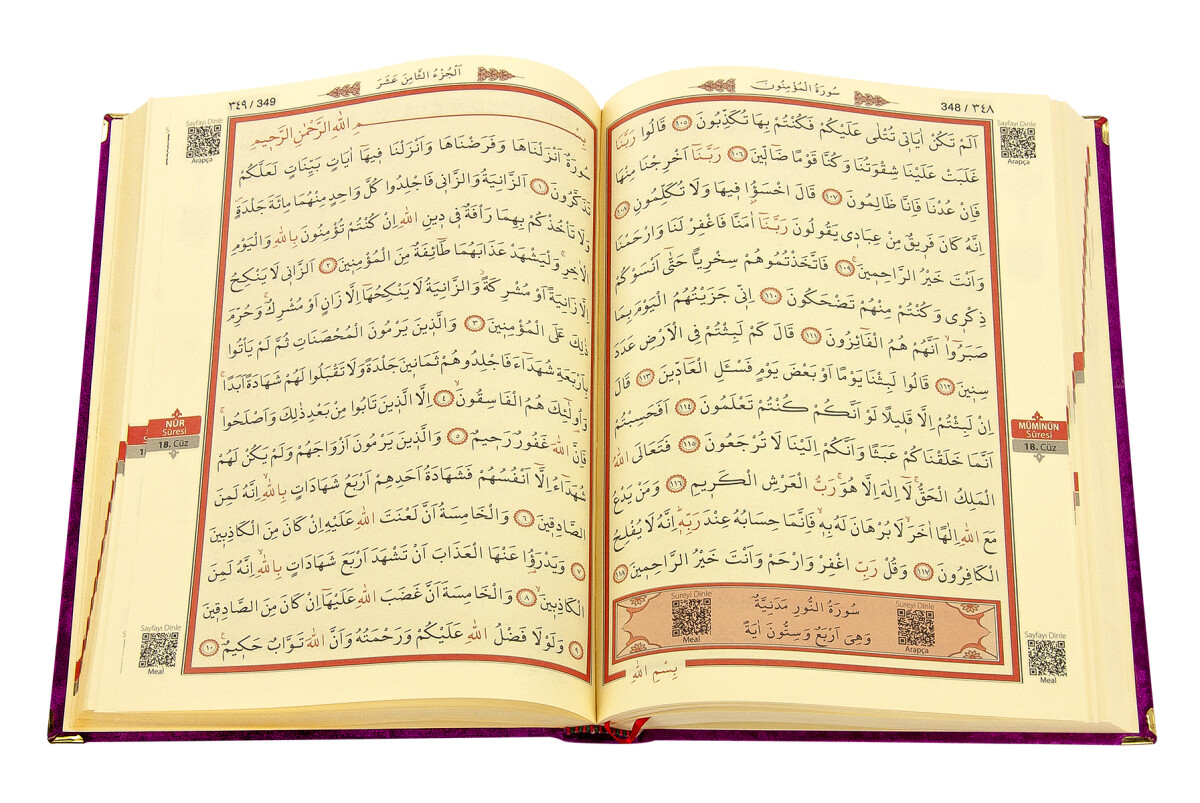 348 / ٣٤٨
سُورَةُ الْمُؤْمِنُونَ
Sayfayı Dinle
Arapça
اَلَمْ تَكُنْ اٰيَاتٖى تُتْلٰى عَلَيْكُمْ فَكُنْتُمْ بِهَا تُكَذِّبُونَ ﴿١٠٥﴾ قَالُوا رَبَّنَا
غَلَبَتْ عَلَيْنَا شِقْوَتُنَا وَكُنَّا قَوْمًا ضَٓالّٖينَ ﴿١٠٦﴾ رَبَّنَٓا اَخْرِجْنَا مِنْهَا
فَاِنْ عُدْنَا فَاِنَّا ظَالِمُونَ ﴿١٠٧﴾ قَالَ اخْسَؤُ۫ا فٖيهَا وَلَا تُكَلِّمُونِ ﴿١٠٨﴾
اِنَّهُ كَانَ فَرٖيقٌ مِنْ عِبَادٖى يَقُولُونَ رَبَّنَٓا اٰمَنَّا فَاغْفِرْ لَنَا وَارْحَمْنَا
وَاَنْتَ خَيْرُ الرَّاحِمٖينَۚ ﴿١٠٩﴾ فَاتَّخَذْتُمُوهُمْ سِخْرِيًّا حَتّٰٓى اَنْسَوْكُمْ
ذِكْرٖى وَكُنْتُمْ مِنْهُمْ تَضْحَكُونَ ﴿١١٠﴾ اِنّٖى جَزَيْتُهُمُ الْيَوْمَ بِمَا
صَبَرُٓواۙ اَنَّهُمْ هُمُ الْفَٓائِزُونَ ﴿١١١﴾ قَالَ كَمْ لَبِثْتُمْ فِى الْاَرْضِ عَدَدَ
سِنٖينَ ﴿١١٢﴾ قَالُوا لَبِثْنَا يَوْمًا اَوْ بَعْضَ يَوْمٍ فَسْـَٔلِ الْعَٓادّٖينَ ﴿١١٣﴾ قَالَ
اِنْ لَبِثْتُمْ اِلَّا قَلٖيلًا لَوْ اَنَّكُمْ كُنْتُمْ تَعْلَمُونَ ﴿١١٤﴾ اَفَحَسِبْتُمْ
اَنَّمَا خَلَقْنَاكُمْ عَبَثًا وَاَنَّكُمْ اِلَيْنَا لَا تُرْجَعُونَ ﴿١١٥﴾ فَتَعَالَى اللّٰهُ
الْمَلِكُ الْحَقُّۚ لَٓا اِلٰهَ اِلَّا هُوَۚ رَبُّ الْعَرْشِ الْكَرٖيمِ ﴿١١٦﴾ وَمَنْ يَدْعُ
مَعَ اللّٰهِ اِلٰهًا اٰخَرَۙ لَا بُرْهَانَ لَهُ بِهٖۙ فَاِنَّمَا حِسَابُهُ عِنْدَ رَبِّهٖؕ اِنَّهُ لَا يُفْلِحُ
الْكَافِرُونَ ﴿١١٧﴾ وَقُلْ رَبِّ اغْفِرْ وَارْحَمْ وَاَنْتَ خَيْرُ الرَّاحِمٖينَ ﴿١١٨﴾
سُورَةُ النُّورِ مَدَنِيَّةٌ
وَهِىَ اَرْبَعٌ وَسِتُّونَ اٰيَةً
Sureyi Dinle
Arapça
Sureyi Dinle
Meal
بِسْمِ اللّٰهِ
MÜMİNÛN
Sûresi
18. Cüz
Sayfayı Dinle
Meal
٣٤٩ / 349
اَلْجُزْءُ الثَّامِنَ عَشَرَ
Sayfayı Dinle
Arapça
بِسْمِ اللّٰهِ الرَّحْمٰنِ الرَّحٖيمِ
سُورَةٌ اَنْزَلْنَاهَا وَفَرَضْنَاهَا وَاَنْزَلْنَا فٖيهَٓا اٰيَاتٍ بَيِّنَاتٍ لَعَلَّكُمْ
تَذَكَّرُونَ ﴿١﴾ اَلزَّانِيَةُ وَالزَّانٖى فَاجْلِدُوا كُلَّ وَاحِدٍ مِنْهُمَا مِائَةَ جَلْدَةٍۖ
وَلَا تَاْخُذْكُمْ بِهِمَا رَاْفَةٌ فٖى دٖينِ اللّٰهِ اِنْ كُنْتُمْ تُؤْمِنُونَ بِاللّٰهِ وَالْيَوْمِ
الْاٰخِرِۚ وَلْيَشْهَدْ عَذَابَهُمَا طَٓائِفَةٌ مِنَ الْمُؤْمِنٖينَ ﴿٢﴾ اَلزَّانٖى لَا يَنْكِحُ
اِلَّا زَانِيَةً اَوْ مُشْرِكَةًۘ وَالزَّانِيَةُ لَا يَنْكِحُهَٓا اِلَّا زَانٍ اَوْ مُشْرِكٌۚ وَحُرِّمَ
ذٰلِكَ عَلَى الْمُؤْمِنٖينَ ﴿٣﴾ وَالَّذٖينَ يَرْمُونَ الْمُحْصَنَاتِ ثُمَّ لَمْ يَاْتُوا
بِاَرْبَعَةِ شُهَدَٓاءَ فَاجْلِدُوهُمْ ثَمَانٖينَ جَلْدَةً وَلَا تَقْبَلُوا لَهُمْ شَهَادَةً اَبَدًاۚ
وَاُو۬لٰٓئِكَ هُمُ الْفَاسِقُونَۙ ﴿٤﴾ اِلَّا الَّذٖينَ تَابُوا مِنْ بَعْدِ ذٰلِكَ وَاَصْلَحُواۚ
فَاِنَّ اللّٰهَ غَفُورٌ رَحٖيمٌ ﴿٥﴾ وَالَّذٖينَ يَرْمُونَ اَزْوَاجَهُمْ وَلَمْ يَكُنْ لَهُمْ
شُهَدَٓاءُ اِلَّٓا اَنْفُسُهُمْ فَشَهَادَةُ اَحَدِهِمْ اَرْبَعُ شَهَادَاتٍ بِاللّٰهِۙ اِنَّهُ لَمِنَ
الصَّادِقٖينَ ﴿٦﴾ وَالْخَامِسَةُ اَنَّ لَعْنَتَ اللّٰهِ عَلَيْهِ اِنْ كَانَ مِنَ الْكَاذِبٖينَ
﴿٧﴾ وَيَدْرَؤُ۬ا عَنْهَا الْعَذَابَ اَنْ تَشْهَدَ اَرْبَعَ شَهَادَاتٍ بِاللّٰهِۙ اِنَّهُ لَمِنَ
الْكَاذِبٖينَۙ ﴿٨﴾ وَالْخَامِسَةَ اَنَّ غَضَبَ اللّٰهِ عَلَيْهَٓا اِنْ كَانَ مِنَ الصَّادِقٖينَ
﴿٩﴾ وَلَوْلَا فَضْلُ اللّٰهِ عَلَيْكُمْ وَرَحْمَتُهُ وَاَنَّ اللّٰهَ تَوَّابٌ حَكٖيمٌ۟ ﴿١٠﴾
NÛR
Sûresi
18. Cüz
Sayfayı Dinle
Meal